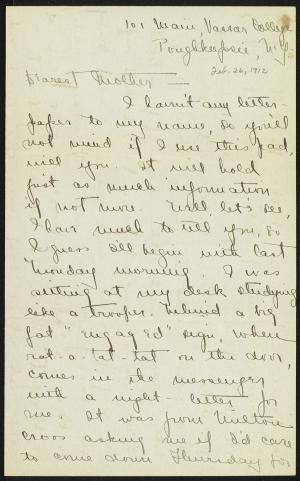 101 Main, Vassar College
Poughkeepsie, N.Y.
Feb. 26, 1912
Dearest Mother —
I haven't any letter-
paper to my name, so you'll
not mind if I use this pad,
will you. It will hold
just as much information
if not more. Well, let's see,
I have much to tell you, so
I guess I'll begin with last
Monday morning. I was
sitting at my desk studying
like a trooper behind a big
fat "Engaged" sign, when
rat-a-tat-tat on the door,
comes in the messenger
with a night-letter for
me. It was from Milton
Cross asking me if I'd care
to come down Thursday for